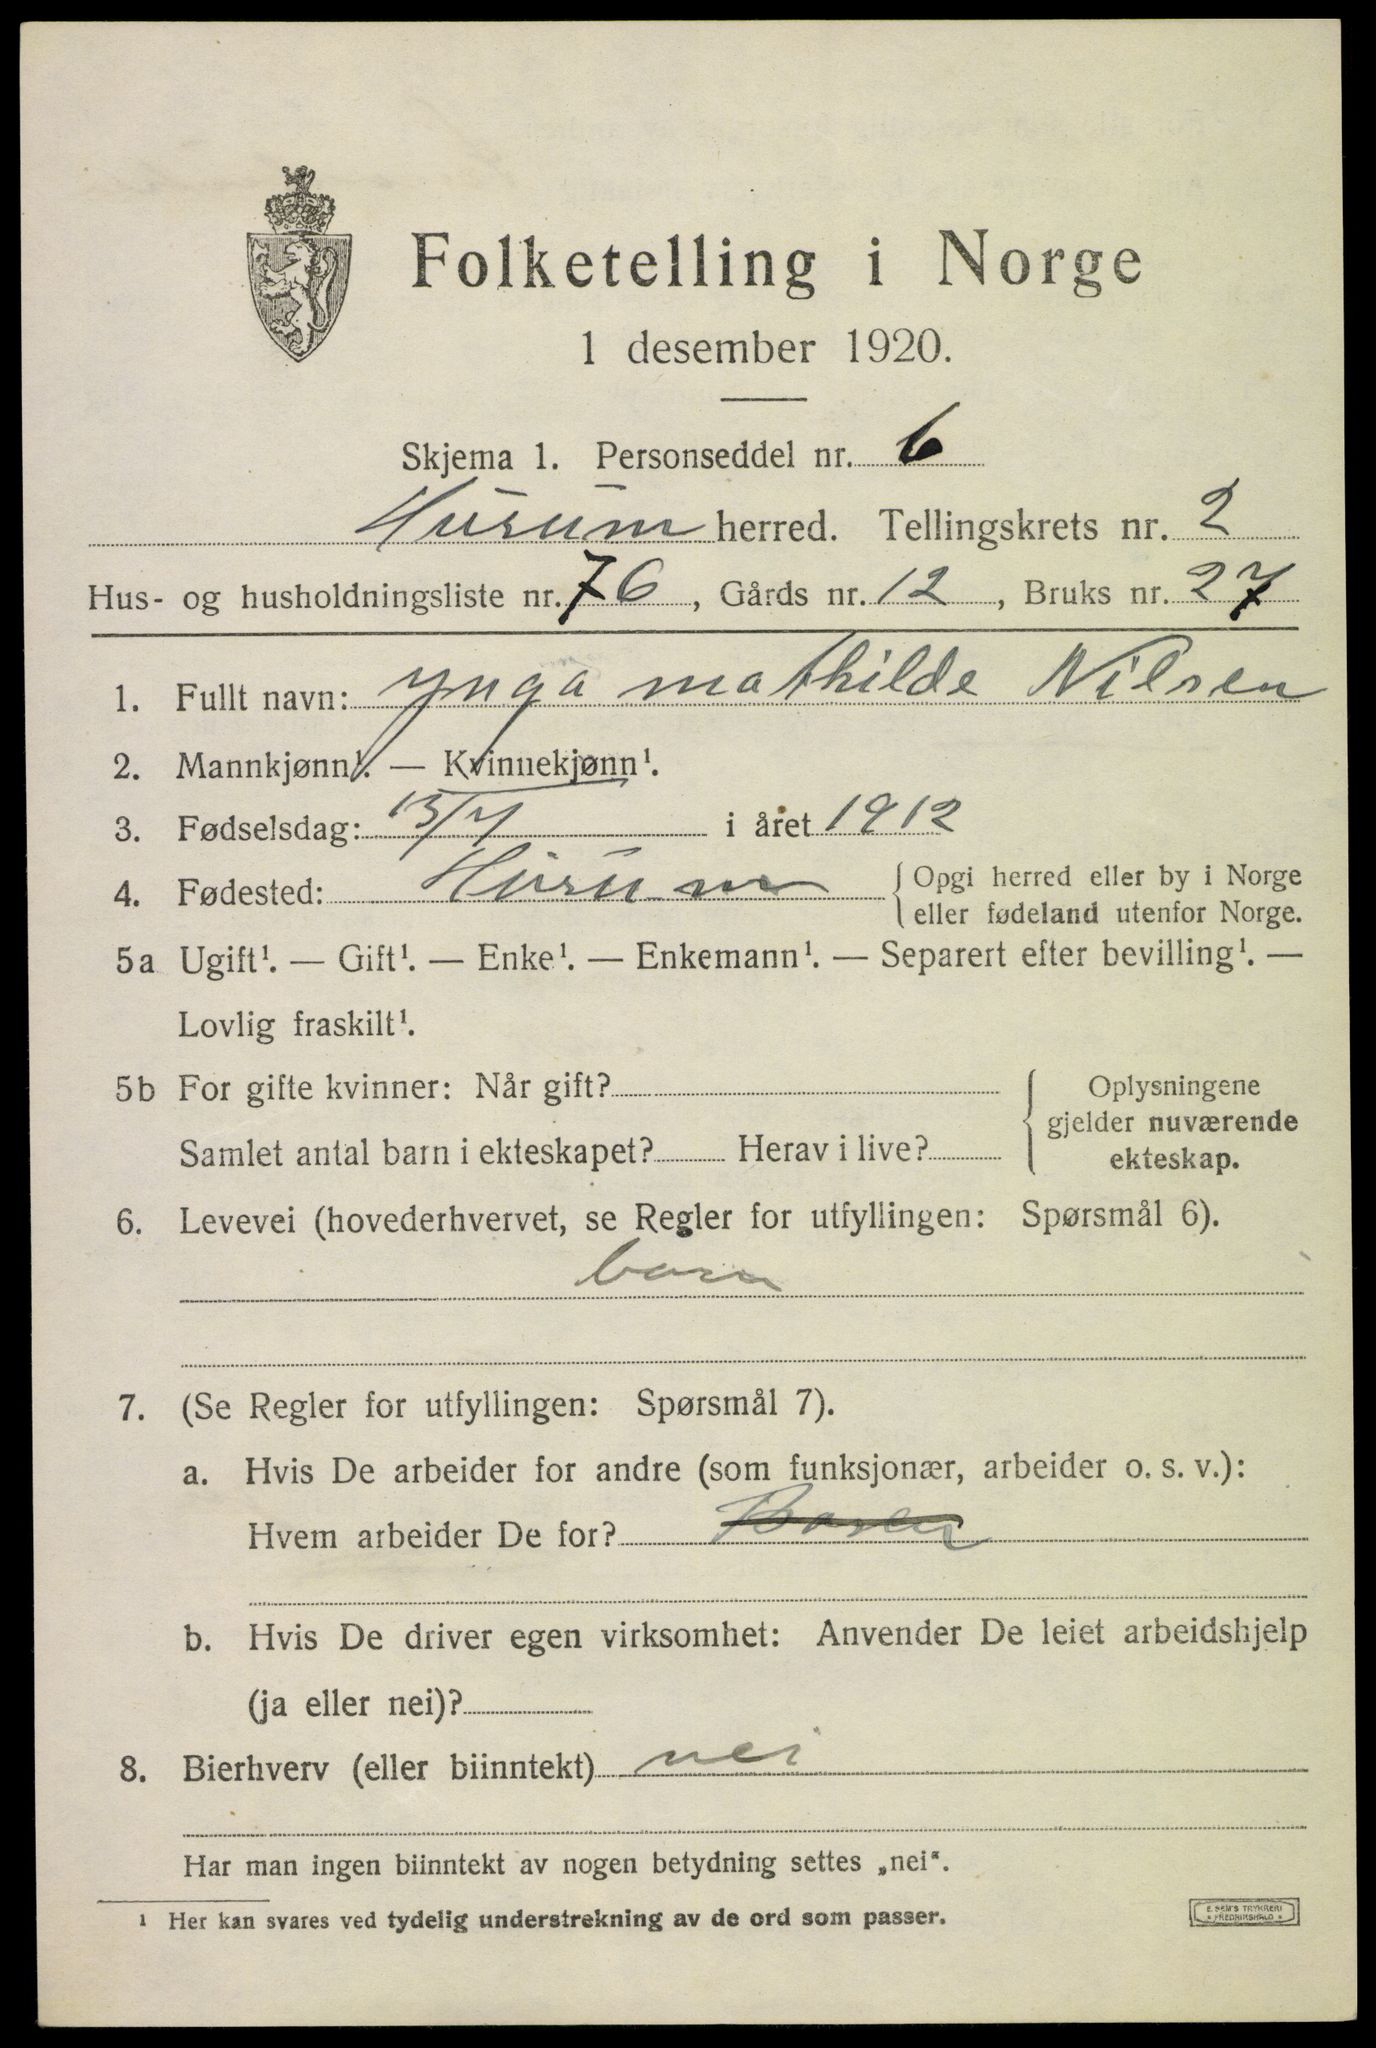 Folketelling i Norge
1 desember 1920.
Skjema 1. Personseddel nr. 6
Hurum herred. Tellingskrets nr. 2
Hus- og husholdningsliste nr. 76, Gårds nr. 12, Bruks nr. 27
1. Fullt navn: Ynga mathilde Nilsen
2. Mannkjønn¹. — Kvinnekjønn¹.
3. Fødselsdag: 13/7 i året 1912
4. Fødested: Hurum {Opgi herred eller by i Norge
eller fødeland utenfor Norge.
5a Ugift¹. — Gift¹. — Enke¹. — Enkemann¹. — Separert efter bevilling¹. —
Lovlig fraskilt¹.
5b For gifte kvinner: Når gift? { Oplysningene
gjelder nuværende
Samlet antal barn i ekteskapet? Herav i live? ekteskap.
6. Levevei (hovederhvervet, se Regler for utfyllingen: Spørsmål 6).
barn
7. (Se Regler for utfyllingen: Spørsmål 7).
a. Hvis De arbeider for andre (som funksjonær, arbeider o. s. v.):
Hvem arbeider De for?
b. Hvis De driver egen virksomhet: Anvender De leiet arbeidshjelp
(ja eller nei)?
8. Bierhverv (eller biinntekt) nei
Har man ingen biinntekt av nogen betydning settes „nei“.
¹ Her kan svares ved tydelig understrekning av de ord som passer.
E. SEM'S TRYKKERI
FREDRIKSHALD